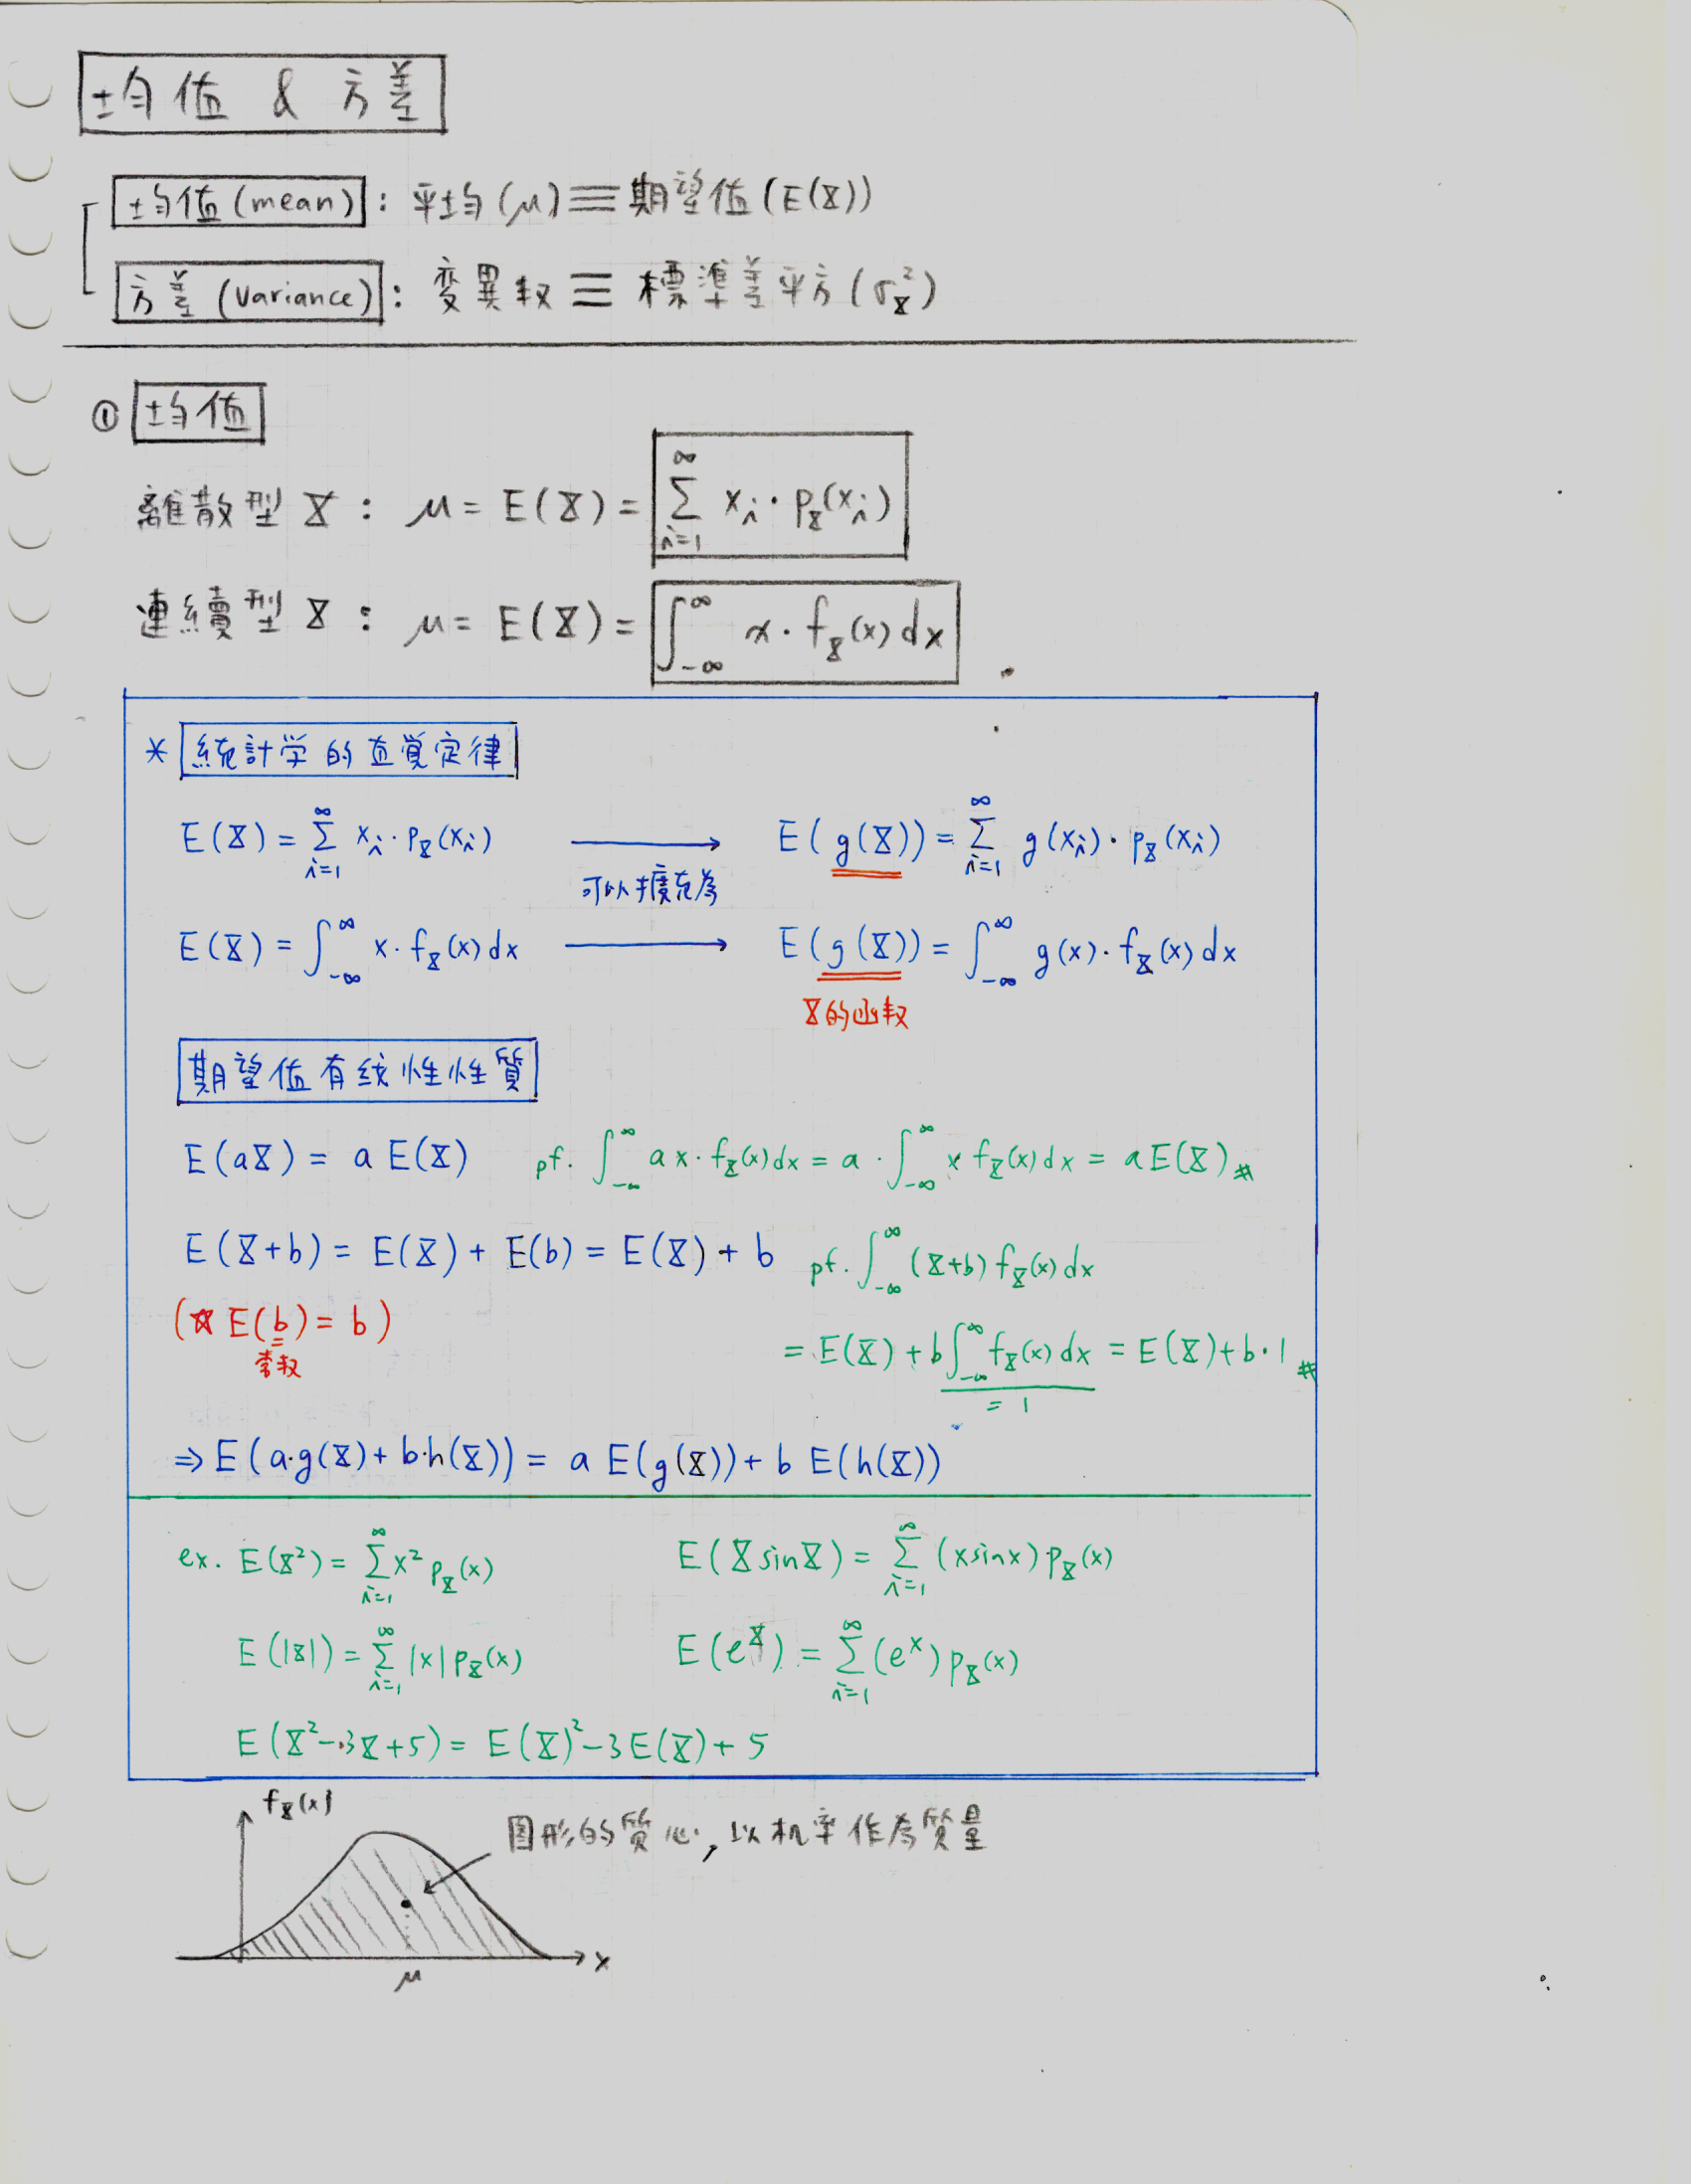 均值 & 方差
均值 (mean) : 平均 (μ) ≡ 期望值 (E(X))
方差 (Variance) : 変異数 ≡ 標準差平方 (σ_X²)
① 均值
離散型 X : μ = E(X) = ∑_{i=1}^{∞} x_i · p_X(x_i)
連續型 X : μ = E(X) = ∫_{-∞}^{∞} x · f_X(x) dx
* 統計学的直覚定律
E(X) = ∑_{i=1}^{∞} x_i · p_X(x_i) ⟶ E(g(X)) = ∑_{i=1}^{∞} g(x_i) · p_X(x_i)
可以擴充為
E(X) = ∫_{-∞}^{∞} x · f_X(x) dx ⟶ E(g(X)) = ∫_{-∞}^{∞} g(x) · f_X(x) dx
X的函数
期望值有线性性質
E(aX) = a E(X) pf. ∫_{-∞}^{∞} ax · f_X(x) dx = a · ∫_{-∞}^{∞} x f_X(x) dx = a E(X) #
E(X+b) = E(X) + E(b) = E(X) + b pf. ∫_{-∞}^{∞} (X+b) f_X(x) dx
(☆ E(b) = b)
常数
= E(X) + b∫_{-∞}^{∞} f_X(x) dx = E(X) + b·1 #
= 1
⇒ E(a·g(X) + b·h(X)) = a E(g(X)) + b E(h(X))
ex. E(X²) = ∑_{i=1}^{∞} x² p_X(x) E(X sinX) = ∑_{i=1}^{∞} (x sinx) · p_X(x)
E(|X|) = ∑_{i=1}^{∞} |x| p_X(x) E(e^X) = ∑_{i=1}^{∞} (e^x) p_X(x)
E(X²-3X+5) = E(X)²-3E(X)+5
f_X(x)
图形的質心, 以机率作為質量
x
μ